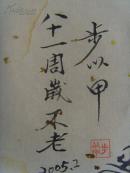 步以甲
八十一周歲不老
2005.2